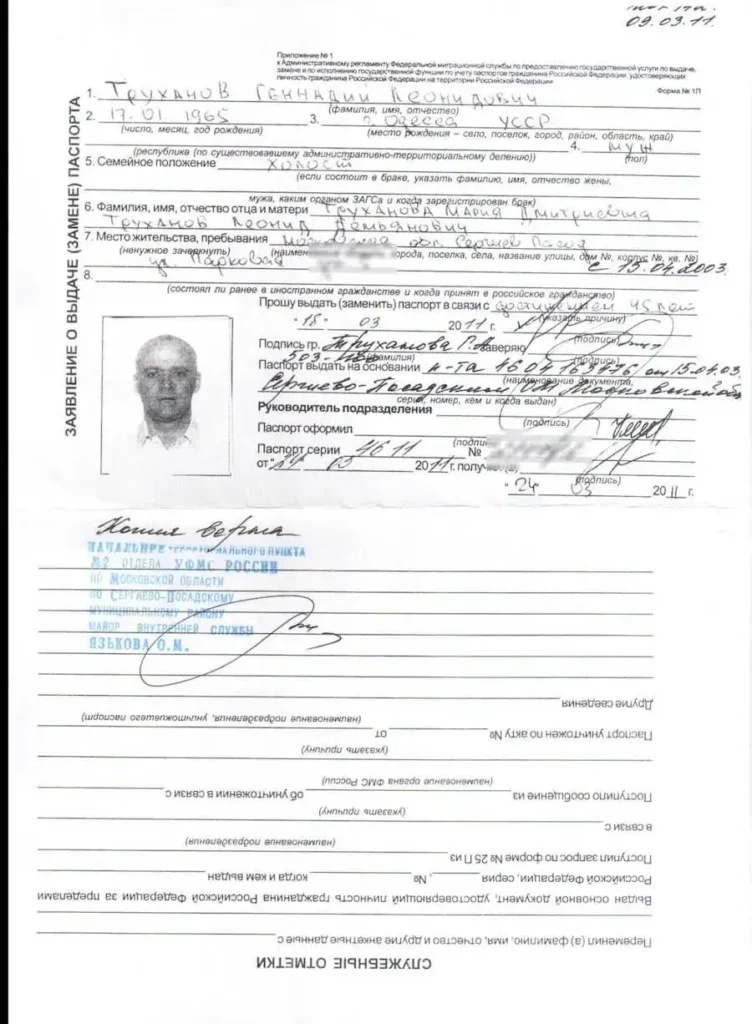 09.03.11.
Приложение № 1
к Административному регламенту Федеральной миграционной службы по предоставлению государственной услуги по выдаче,
замене и по исполнению государственной функции по учету паспортов гражданина Российской Федерации, удостоверяющих
личность гражданина Российской Федерации на территории Российской Федерации
Форма № 1П
ЗАЯВЛЕНИЕ О ВЫДАЧЕ (ЗАМЕНЕ) ПАСПОРТА
1. Труханов Геннадий Леонидович
(фамилия, имя, отчество)
2. 17.01.1965 3. г. Одесса УССР
(число, месяц, год рождения) (место рождения – село, поселок, город, район, область, край)
4. муж
(республика (по существовавшему административно-территориальному делению)) (пол)
5. Семейное положение холост
(если состоит в браке, указать фамилию, имя, отчество жены,
мужа, каким органом ЗАГСа и когда зарегистрирован брак)
6. Фамилия, имя, отчество отца и матери Труханова Мария Дмитриевна
Труханов Леонид Демьянович
7. Место жительства, пребывания Московская обл. Сергиев Посад
(ненужное зачеркнуть) города, поселка, села, название улицы, дом №, корпус №, кв. №)
ул. Парковая с 15.04.2003.
8.
(состоял ли ранее в иностранном гражданстве и когда принят в российское гражданство)
Прошу выдать (заменить) паспорт в связи с достижением 45 лет
(указать причину)
"18" 03 2011 г.
(подпись)
Подпись гр. Труханова Г.Л. заверяю
503- (фамилия) (подпись)
Паспорт выдать на основании п-та 46 04 от 15.04.03.
(наименование документа,
Сергиево-Посадским ОМ Московской обл
серия, номер, кем и когда выдан)
Руководитель подразделения
(подпись)
Паспорт оформил
(подпи
Паспорт серии 46 11 №
от "24" 03 2011 г. получ
(подпись)
"24" 03 2011 г.
Копия верна
НАЧАЛЬНИК ТЕРРИТОРИАЛЬНОГО ПУНКТА
№2 ОТДЕЛА УФМС РОССИИ
ПО МОСКОВСКОЙ ОБЛАСТИ
ПО СЕРГИЕВО-ПОСАДСКОМУ
МУНИЦИПАЛЬНОМУ РАЙОНУ
МАЙОР ВНУТРЕННЕЙ СЛУЖБЫ
ЯЗЬКОВА О.М.
СЛУЖЕБНЫЕ ОТМЕТКИ
Переменил (а) фамилию, имя, отчество и другие анкетные данные с
Выдан основной документ, удостоверяющий личность гражданина Российской Федерации за пределами
Российской Федерации, серия , № , когда и кем выдан
Поступил запрос по форме № 25 П из
(наименование подразделения)
в связи с
(указать причину)
Поступило сообщение из об уничтожении в связи с
(наименование органа ФМС России)
(указать причину)
Паспорт уничтожен по акту № от
(наименование подразделения, уничтожавшего паспорт)
Другие сведения